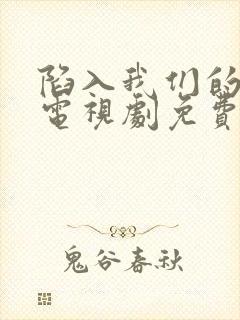 陷入我们的
電視劇免費
鬼谷春秋